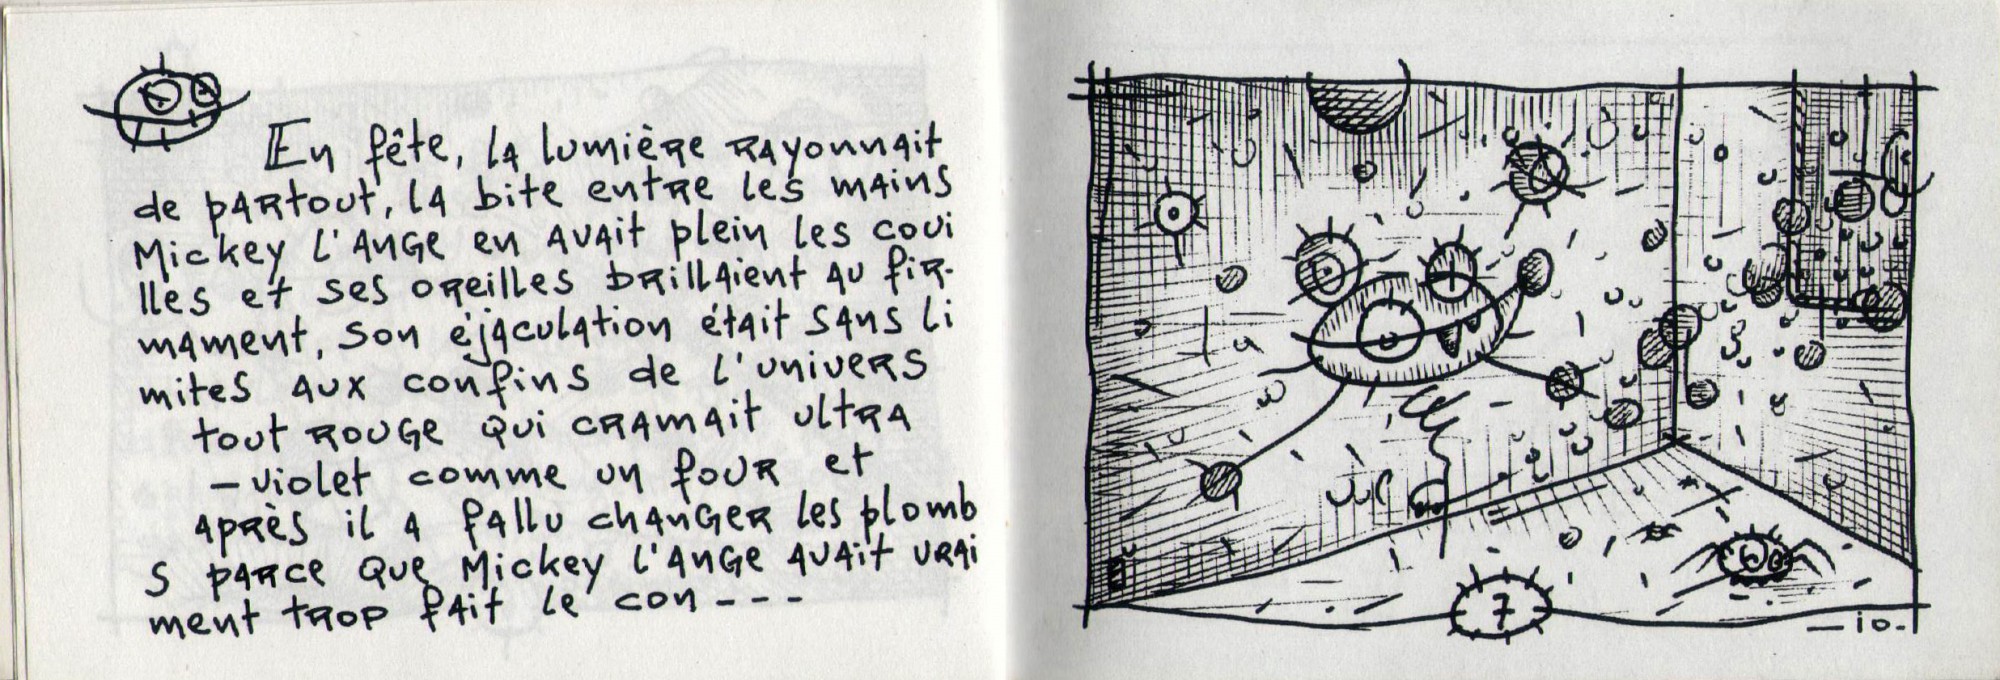 En fête, la lumière rayonnait
de partout, la bite entre les mains
Mickey l'ange en avait plein les coui
lles et ses oreilles brillaient au fir-
mament, son éjaculation était sans li
mites aux confins de l'univers
tout rouge qui cramait ultra
-violet comme un four et
après il a fallu changer les plomb
s parce que Mickey l'ange avait vrai
ment trop fait le con---
7
-io-